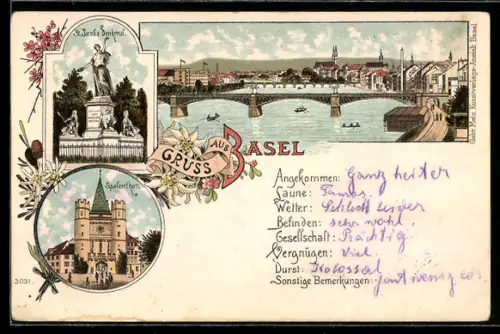 St. Jacobs Denkmal.
Gebr. Metz, Kunstverlags-Anstalt, Basel.
GRUSS AUS
BASEL
Spalenthor.
Angekommen: Ganz heiter
Laune: Famos.
Wetter: Schlecht leider
Befinden: sehr wohl.
Gesellschaft: Prächtig
Vergnügen: Viel.
Durst: Kolossal
Sonstige Bemerkungen:
3031.